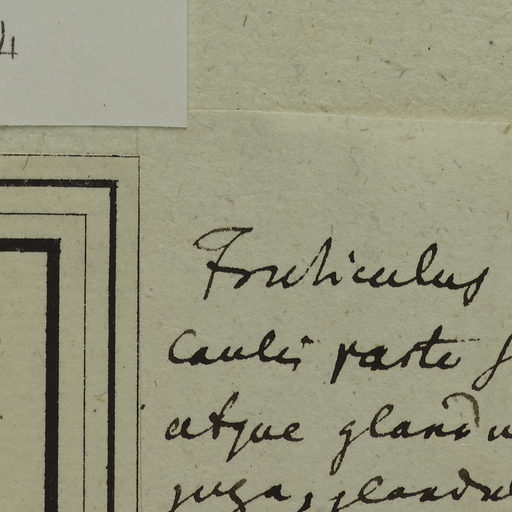 4
Fruticulus
Caulis parte
atque glandu
juga, glandul